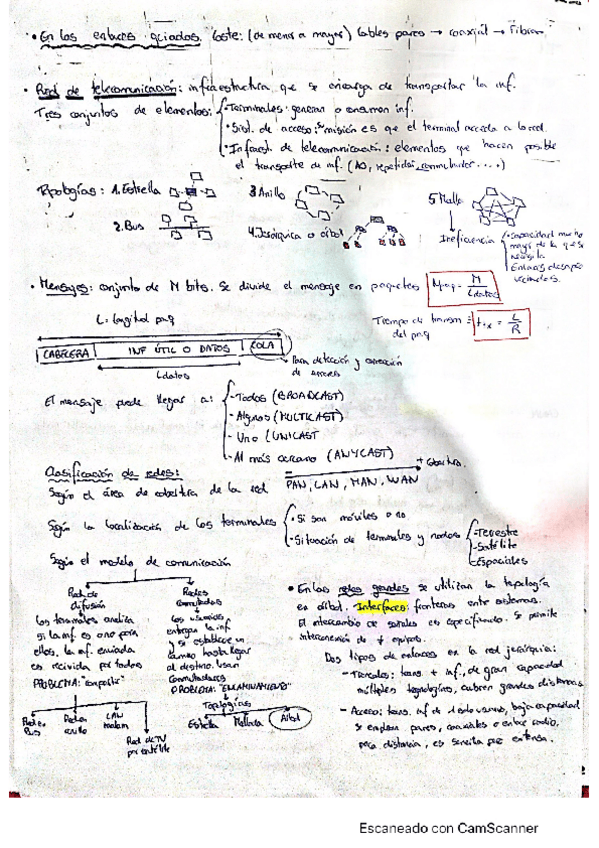 • En los enlaces guiados. Coste: (de menor a mayor) Cables pares → coaxial → Fibra
• Red de telecomunicación: infraestructura que se encarga de transportar la inf.
Tres conjuntos de elementos: - Terminales: generan o consumen inf.
• Sist. de acceso: misión es que el terminal acceda a la red.
• Infraest. de telecomunicación: elementos que hacen posible
el transporte de inf. (AO, repetidor, conmutador ....)
Topologías: 1. Estrella
3 Anillo
5 Malla
2. Bus
4. Jerárquica o árbol
Ineficiencia
- capacidad mucho
mayor de la que se
necesita
Enlaces desapro
vechados.
• Mensajes: conjunto de M bits. Se divide el mensaje en paquetes
Mpaq = M / Ldatos
L = longitud paq
Tiempo de transm = t_tx = L / R
del paq
CABECERA INF ÚTIL O DATOS COLA
Ldatos
Para detección y corrección
de errores
El mensaje puede llegar a: - Todos (BROADCAST)
- Algunos (MULTICAST)
- Uno (UNICAST
- Al más cercano (ANYCAST)
Clasificación de redes:
+ cobertura
Según el área de cobertura de la red PAN, LAN, MAN, WAN
Según la localización de los terminales • Si son móviles o no
- Situación de terminales y nodos
- Terrestre
- Satélite
- Espaciales
Según el modelo de comunicación
Red de
difusión
Los terminales analiza
si la inf es o no para
ellos, la inf. enviada
es recibida por todos
PROBLEMA: "compartir"
Red en
Bus
Red en
anillo
LAN
Red de TV
por satélite
Redes
conmutadas
Los usuarios
entregan la inf
y se establece un
camino hasta llegar
al destino. Usan
conmutadores
PROBLEMA: "ENCAMINAMIENTO"
Topologías
Estrella Mallada Árbol
• En las redes grandes se utilizan la topología
en árbol. Interfaces: fronteras entre sistemas.
El intercambio de señales es especificado. Se permite
interconexión de ≠ equipos.
Dos tipos de enlaces en la red jerárquica:
- Troncales: trans. + inf, de gran capacidad
múltiples tecnologías, cubren grandes distancias
- Acceso: trans. inf de 1 solo usuario, baja capacidad
se emplean pares, coaxiales o enlace radio,
poca distancia, es sencilla pero extensa.
Escaneado con CamScanner